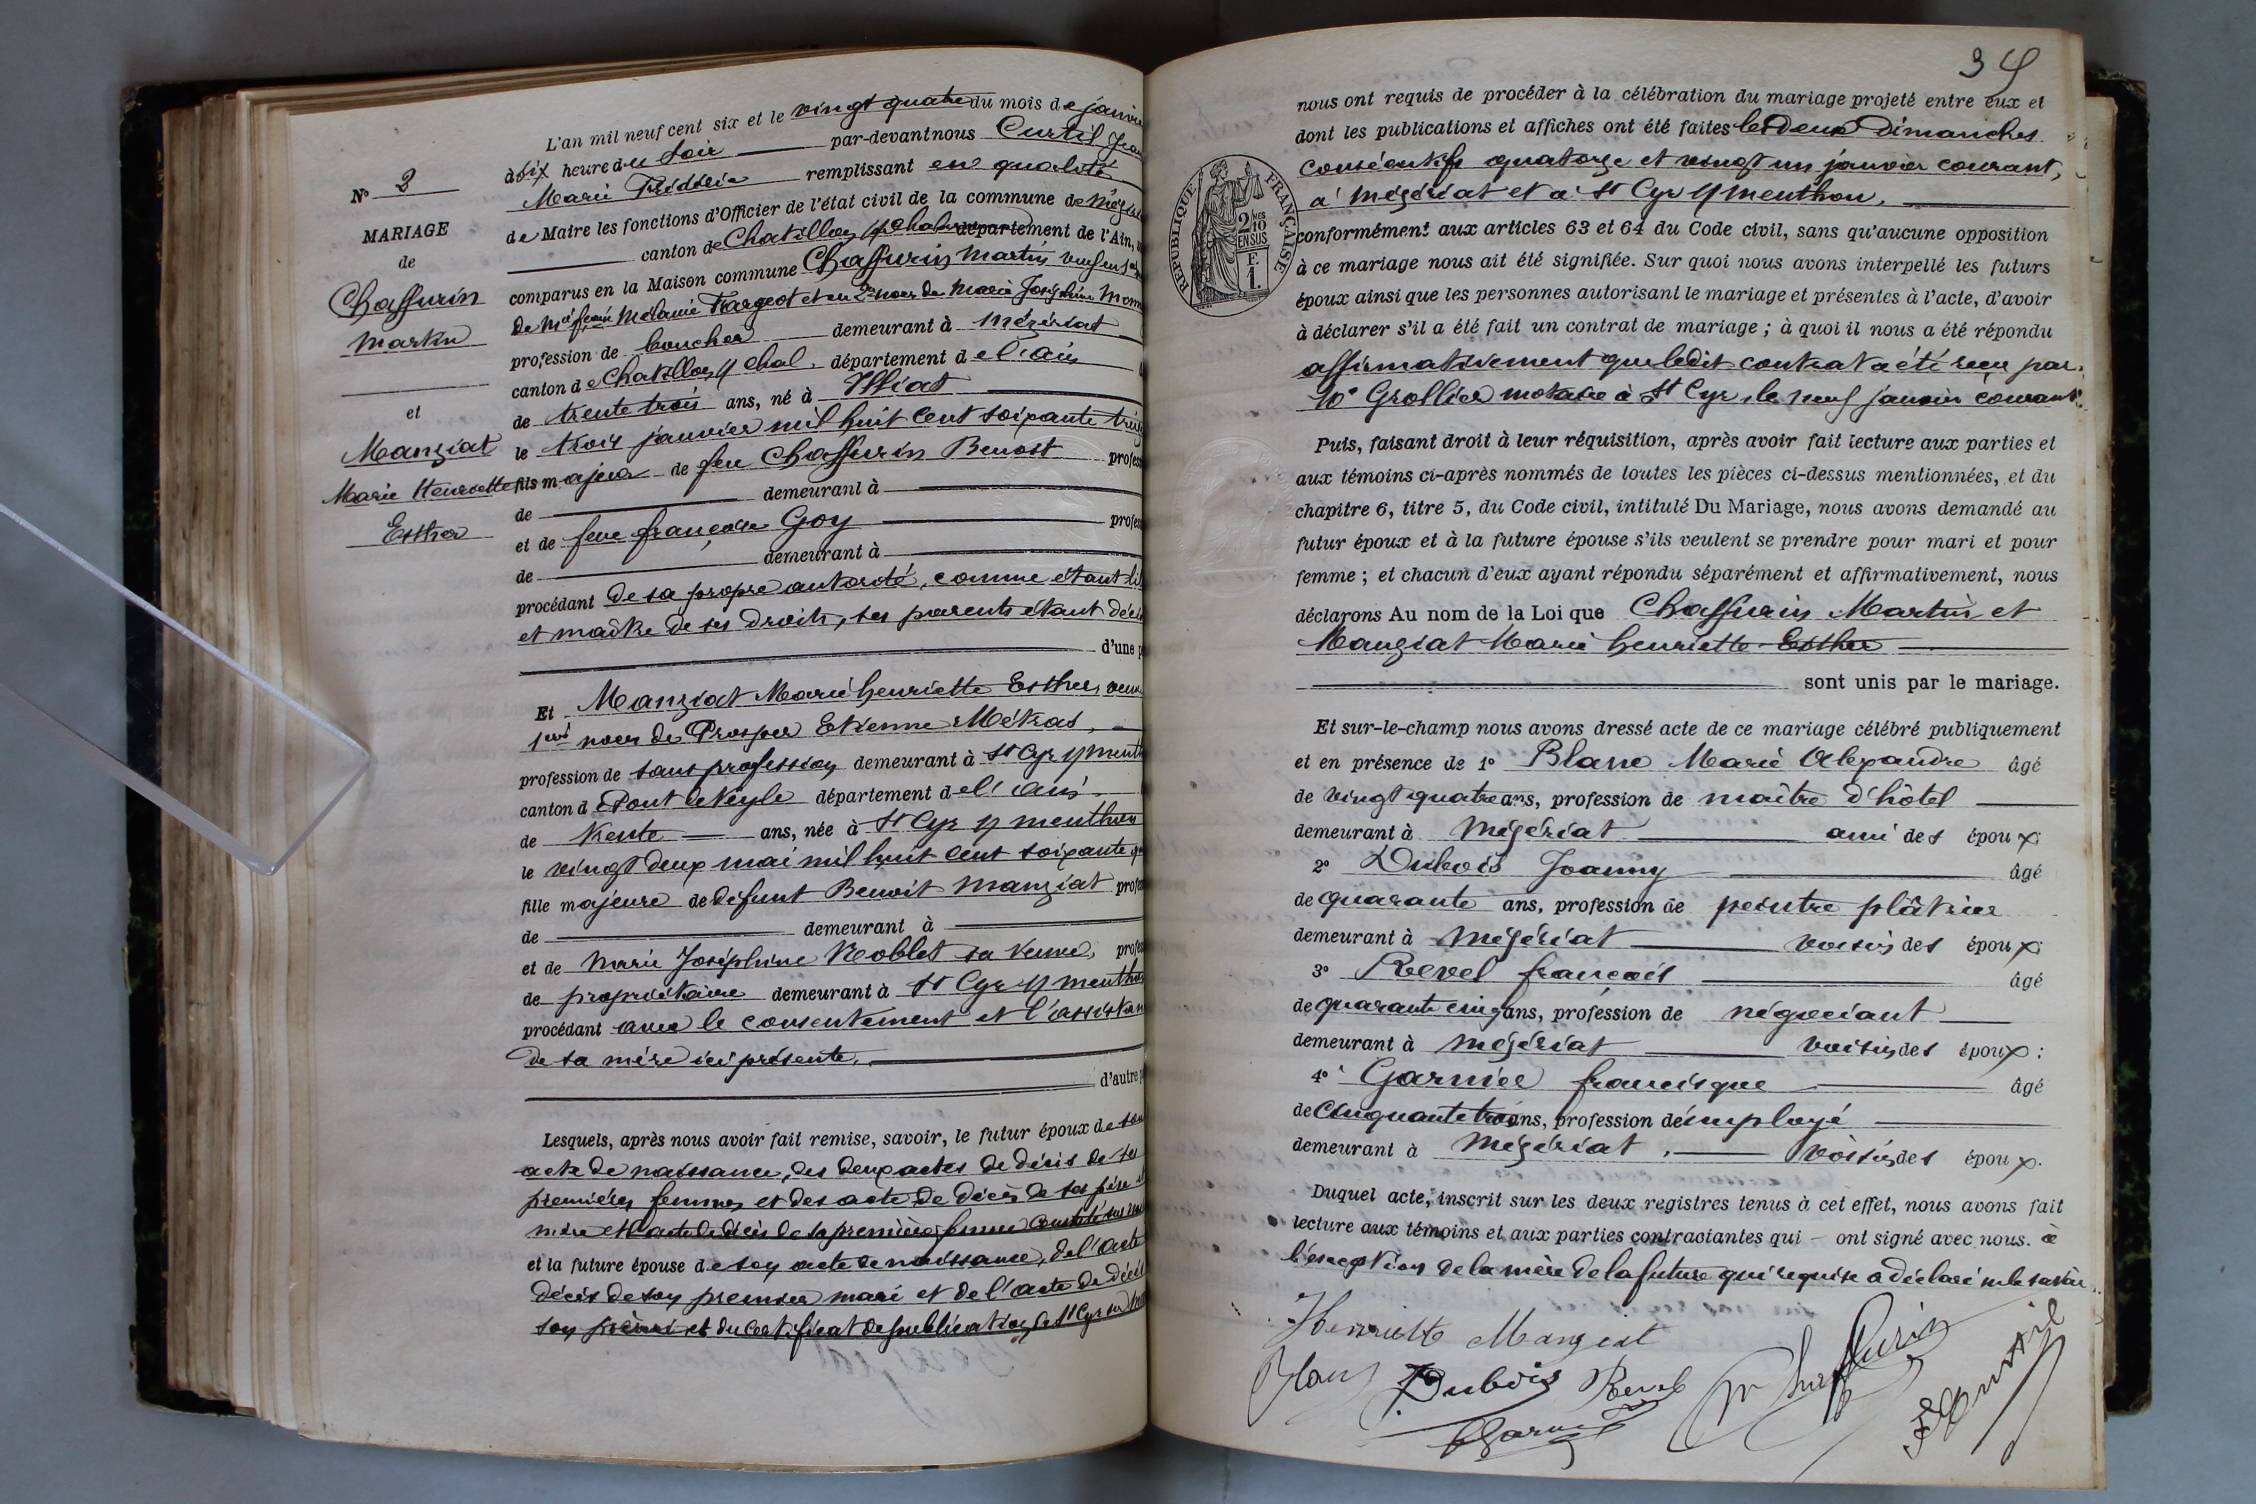 L'an mil neuf cent six et le vingt quatre du mois de janvie
à six heure du soir par-devant nous Curtil Jean
Marie Frédéric remplissant en qualité
de Maire les fonctions d'Officier de l'état civil de la commune de Mézér
canton de Chatillon s/ Chalaronne département de l'Ain,
comparus en la Maison commune Chaffurin Martin veuf en 1res
de Mie Mélanie Fargeot et en 2es noces de Marie Joséphine Monn
profession de boucher demeurant à Mézériat
canton de Chatillon s/ Chal. département de l'Ain
de trente trois ans, né à Illiat
le trois janvier mil huit cent soixante treize
fils majeur de feu Chaffurin Benoit profes
de demeurant à
et de feue françoise Goy profes
de demeurant à
procédant de sa propre autorité, comme étant li
et maître de ses droits, ses parents étant décé
d'une p
N° 2
MARIAGE
de
Chaffurin
Martin
et
Manziat
Marie Henriette
Esther
Et Manziat Marie henriette Esther, veuv
1res noces de Prosper Etienne Métras,
profession de sans profession demeurant à St Cyr s/ menth
canton d Pont de Veyle département de l'Ain
de trente ans, née à St Cyr s/ menthon
le vingt deux mai mil huit cent soixante q
fille majeure de défunt Benoit Manziat profes
de demeurant à
et de Marie Joséphine Noblet sa veuve, profes
de propriétaire demeurant à St Cyr s/ menthon
procédant avec le consentement et l'assistan
de sa mère ici présente.
d'autre p
Lesquels, après nous avoir fait remise, savoir, le futur époux de son
acte de naissance, des deux actes de décès de ses
premières femmes et des acte de décès de ses père et
mère et l'acte de décès de sa première femme constaté sur nos
et la future épouse de son acte de naissance, de l'acte
décès de son premier mari et de l'acte de décès
son père et du certificat de publication de St Cyr sur m
34
nous ont requis de procéder à la célébration du mariage projeté entre eux et
dont les publications et affiches ont été faites les deux Dimanches
consécutifs quatorze et vingt un janvier courant,
à Mézériat et à St Cyr s/ menthon,
RÉPUBLIQUE FRANÇAISE
2 MES
10
EN SUS
F.
1.
conformément aux articles 63 et 64 du Code civil, sans qu'aucune opposition
à ce mariage nous ait été signifiée. Sur quoi nous avons interpellé les futurs
époux ainsi que les personnes autorisant le mariage et présentes à l'acte, d'avoir
à déclarer s'il a été fait un contrat de mariage ; à quoi il nous a été répondu
affirmativement que ledit contrat a été reçu par
Me Grollier notaire à St Cyr, le neuf janvier courant.
Puis, faisant droit à leur réquisition, après avoir fait lecture aux parties et
aux témoins ci-après nommés de toutes les pièces ci-dessus mentionnées, et du
chapitre 6, titre 5, du Code civil, intitulé Du Mariage, nous avons demandé au
futur époux et à la future épouse s'ils veulent se prendre pour mari et pour
femme ; et chacun d'eux ayant répondu séparément et affirmativement, nous
déclarons Au nom de la Loi que Chaffurin Martin et
Manziat Marie henriette Esther
sont unis par le mariage.
Et sur-le-champ nous avons dressé acte de ce mariage célébré publiquement
et en présence de 1° Blanc Marie Alexandre âgé
de vingt quatre ans, profession de maître d'hôtel
demeurant à Mézériat ami des époux;
2° Dubois Joanny âgé
de quarante ans, profession de peintre plâtrier
demeurant à Mézériat voisin des époux;
3° Revel françois âgé
de quarante cinq ans, profession de négociant
demeurant à Mézériat voisin des époux;
4° Garnier francisque âgé
de cinquante trois ans, profession d'employé
demeurant à Mézériat, voisin des époux.
Duquel acte, inscrit sur les deux registres tenus à cet effet, nous avons fait
lecture aux témoins et aux parties contractantes qui – ont signé avec nous. à
l'exception de la mère de la future qui requise a déclaré ne le savoir.
Henriette Manziat
Blanc Dubois Revel M Chaffurin F Curtil
Garnier